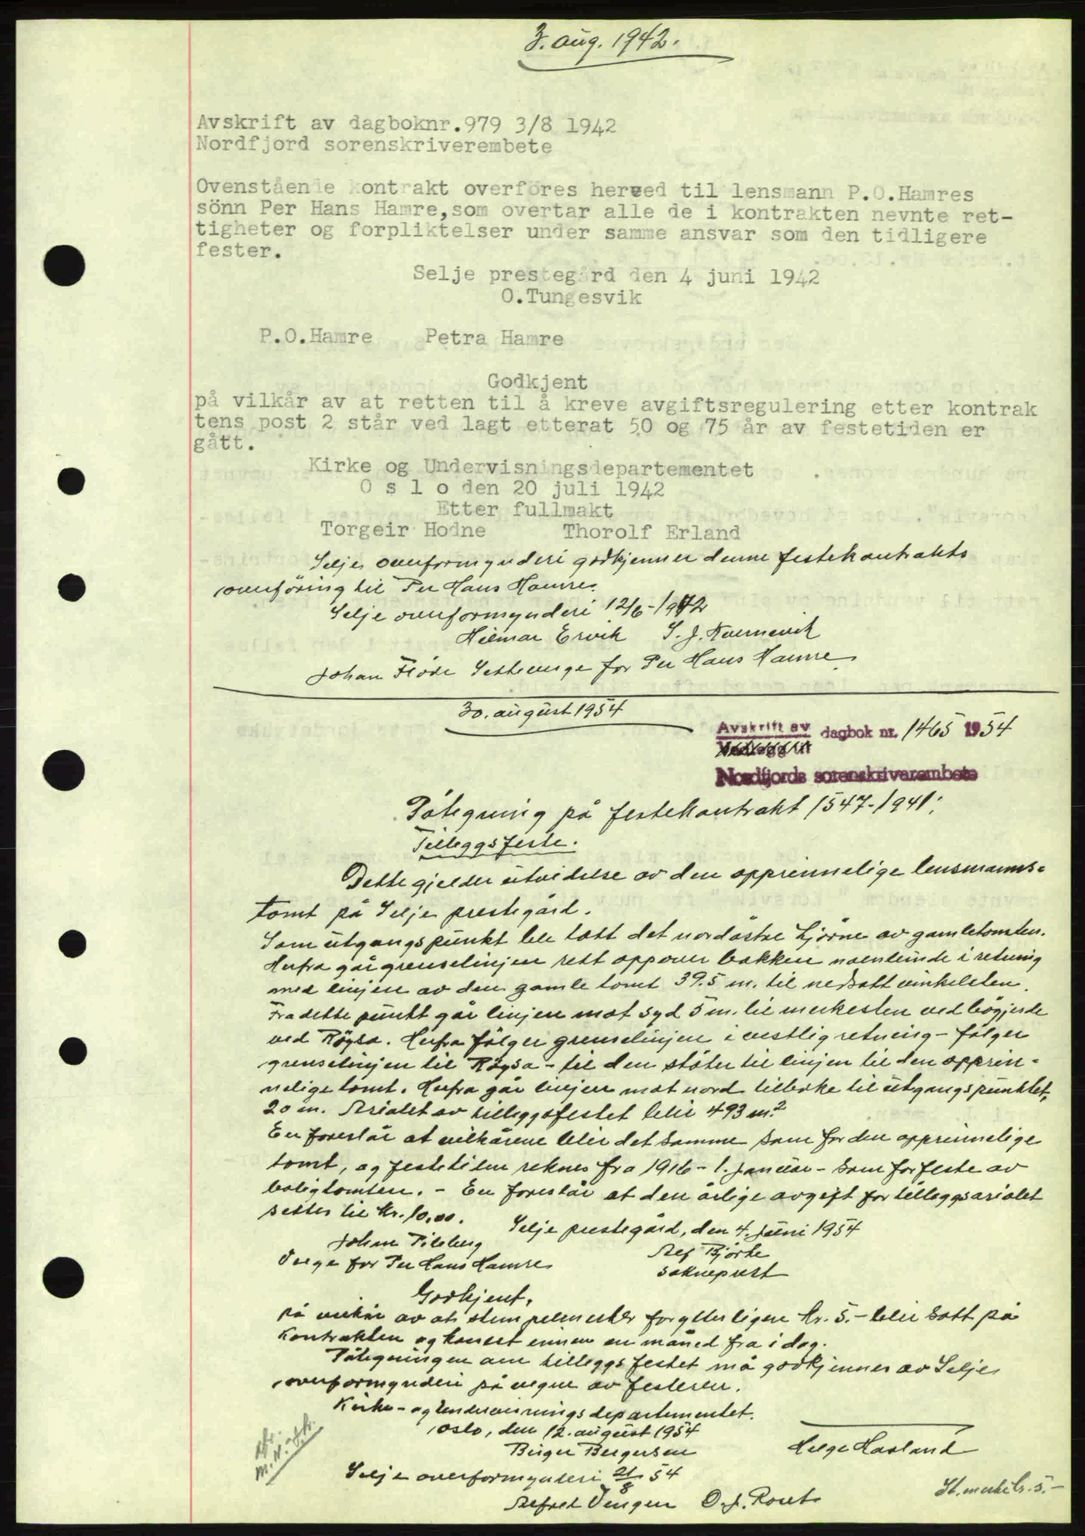 3. aug. 1942.
Avskrift av dagboknr.979 3/8 1942
Nordfjord sorenskriverembete
Ovenståenie kontrakt overföres herved til lensmann P.O.Hamres
sönn Per Hans Hamre,som overtar alle de i kontrakten nevnte ret-
tigheter og forpliktelser under samme ansvar som den tidligere
fester.
Selje prestegård den 4 juni 1942
O.Tungesvik
P.O.Hamre Petra Hamre
Godkjent
på vilkår av at retten til å kreve avgiftsregulering etter kontrak
tens post 2 står ved lagt etterat 50 og 75 år av festetiden er
gått.
Kirke og Undervisningsdepartementet
O s l o den 20 juli 1942
Etter fullmakt
Torgeir Hodne Thorolf Erland
Selje overformynderi godkjenner denne festekontrakts
overföring til Per Hans Hamre.
Selje overformynderi 12/6-1942
Hilmar Ervik S. J.
Johan Flöde Setteverge for Per Hans Hamre
30. august 1954
Avskrift av dagbok nr. 1465 1954
Vedlegg til
Nordfjords sorenskriverembete
Påtegning på festekontrakt 1547-1941:
Tilleggsfeste.
Dette gjelder utvidelse av den opprinnelige lensmanns-
tomt på Selje prestegård.
Som utgangspunkt ble tatt det nordöstre hjörne av gamletomten.
Herfra går grenselinjen rett oppover bakken noenlunde i retning
med linjen av den gamle tomt 39.5 m. til nedsatt vinkelsten.
Fra dette punkt går linjen mot syd 5 m. til merkesten ved bögjerde
ved Röysa. Herfra fölger grenselinjen i vestlig retning - fölger
grenselinjen til Röysa - til den stöter til linjen til den opprin-
nelige tomt. Herfra går linjen mot nord tilbake til utgangspunktet,
20 m. Arealet av tilleggsfestet blir 493 m.2
En foreslår at vilkårene blir det samme som for den opprinnelige
tomt, og festetiden reknes fra 1916 - 1. januar - som for feste av
boligtomten. - En foreslår at den årlige avgift for tilleggsarealet
settes til kr. 10,00. Selje prestegård, den 4. juni 1954
Johan Tilsberg Alf Björke
Verge for Per Hans Hamre sokneprest
Godkjent,
på vilkår av at stempelmerker for ytterligere kr. 5.- blir satt på
kontrakten og kassert innen en måned fra i dag.
Påtegningen om tilleggsfestet må godkjennes av Selje
overformynderi på vegne av festeren.
Kirke- og Undervisningsdepartementet.
Oslo, den 12. august 1954
Birger Bergersen Helge Hasland
Selje overformynderi 21/8 54
Alfred Vengen O. J. St.merke kr. 5.-